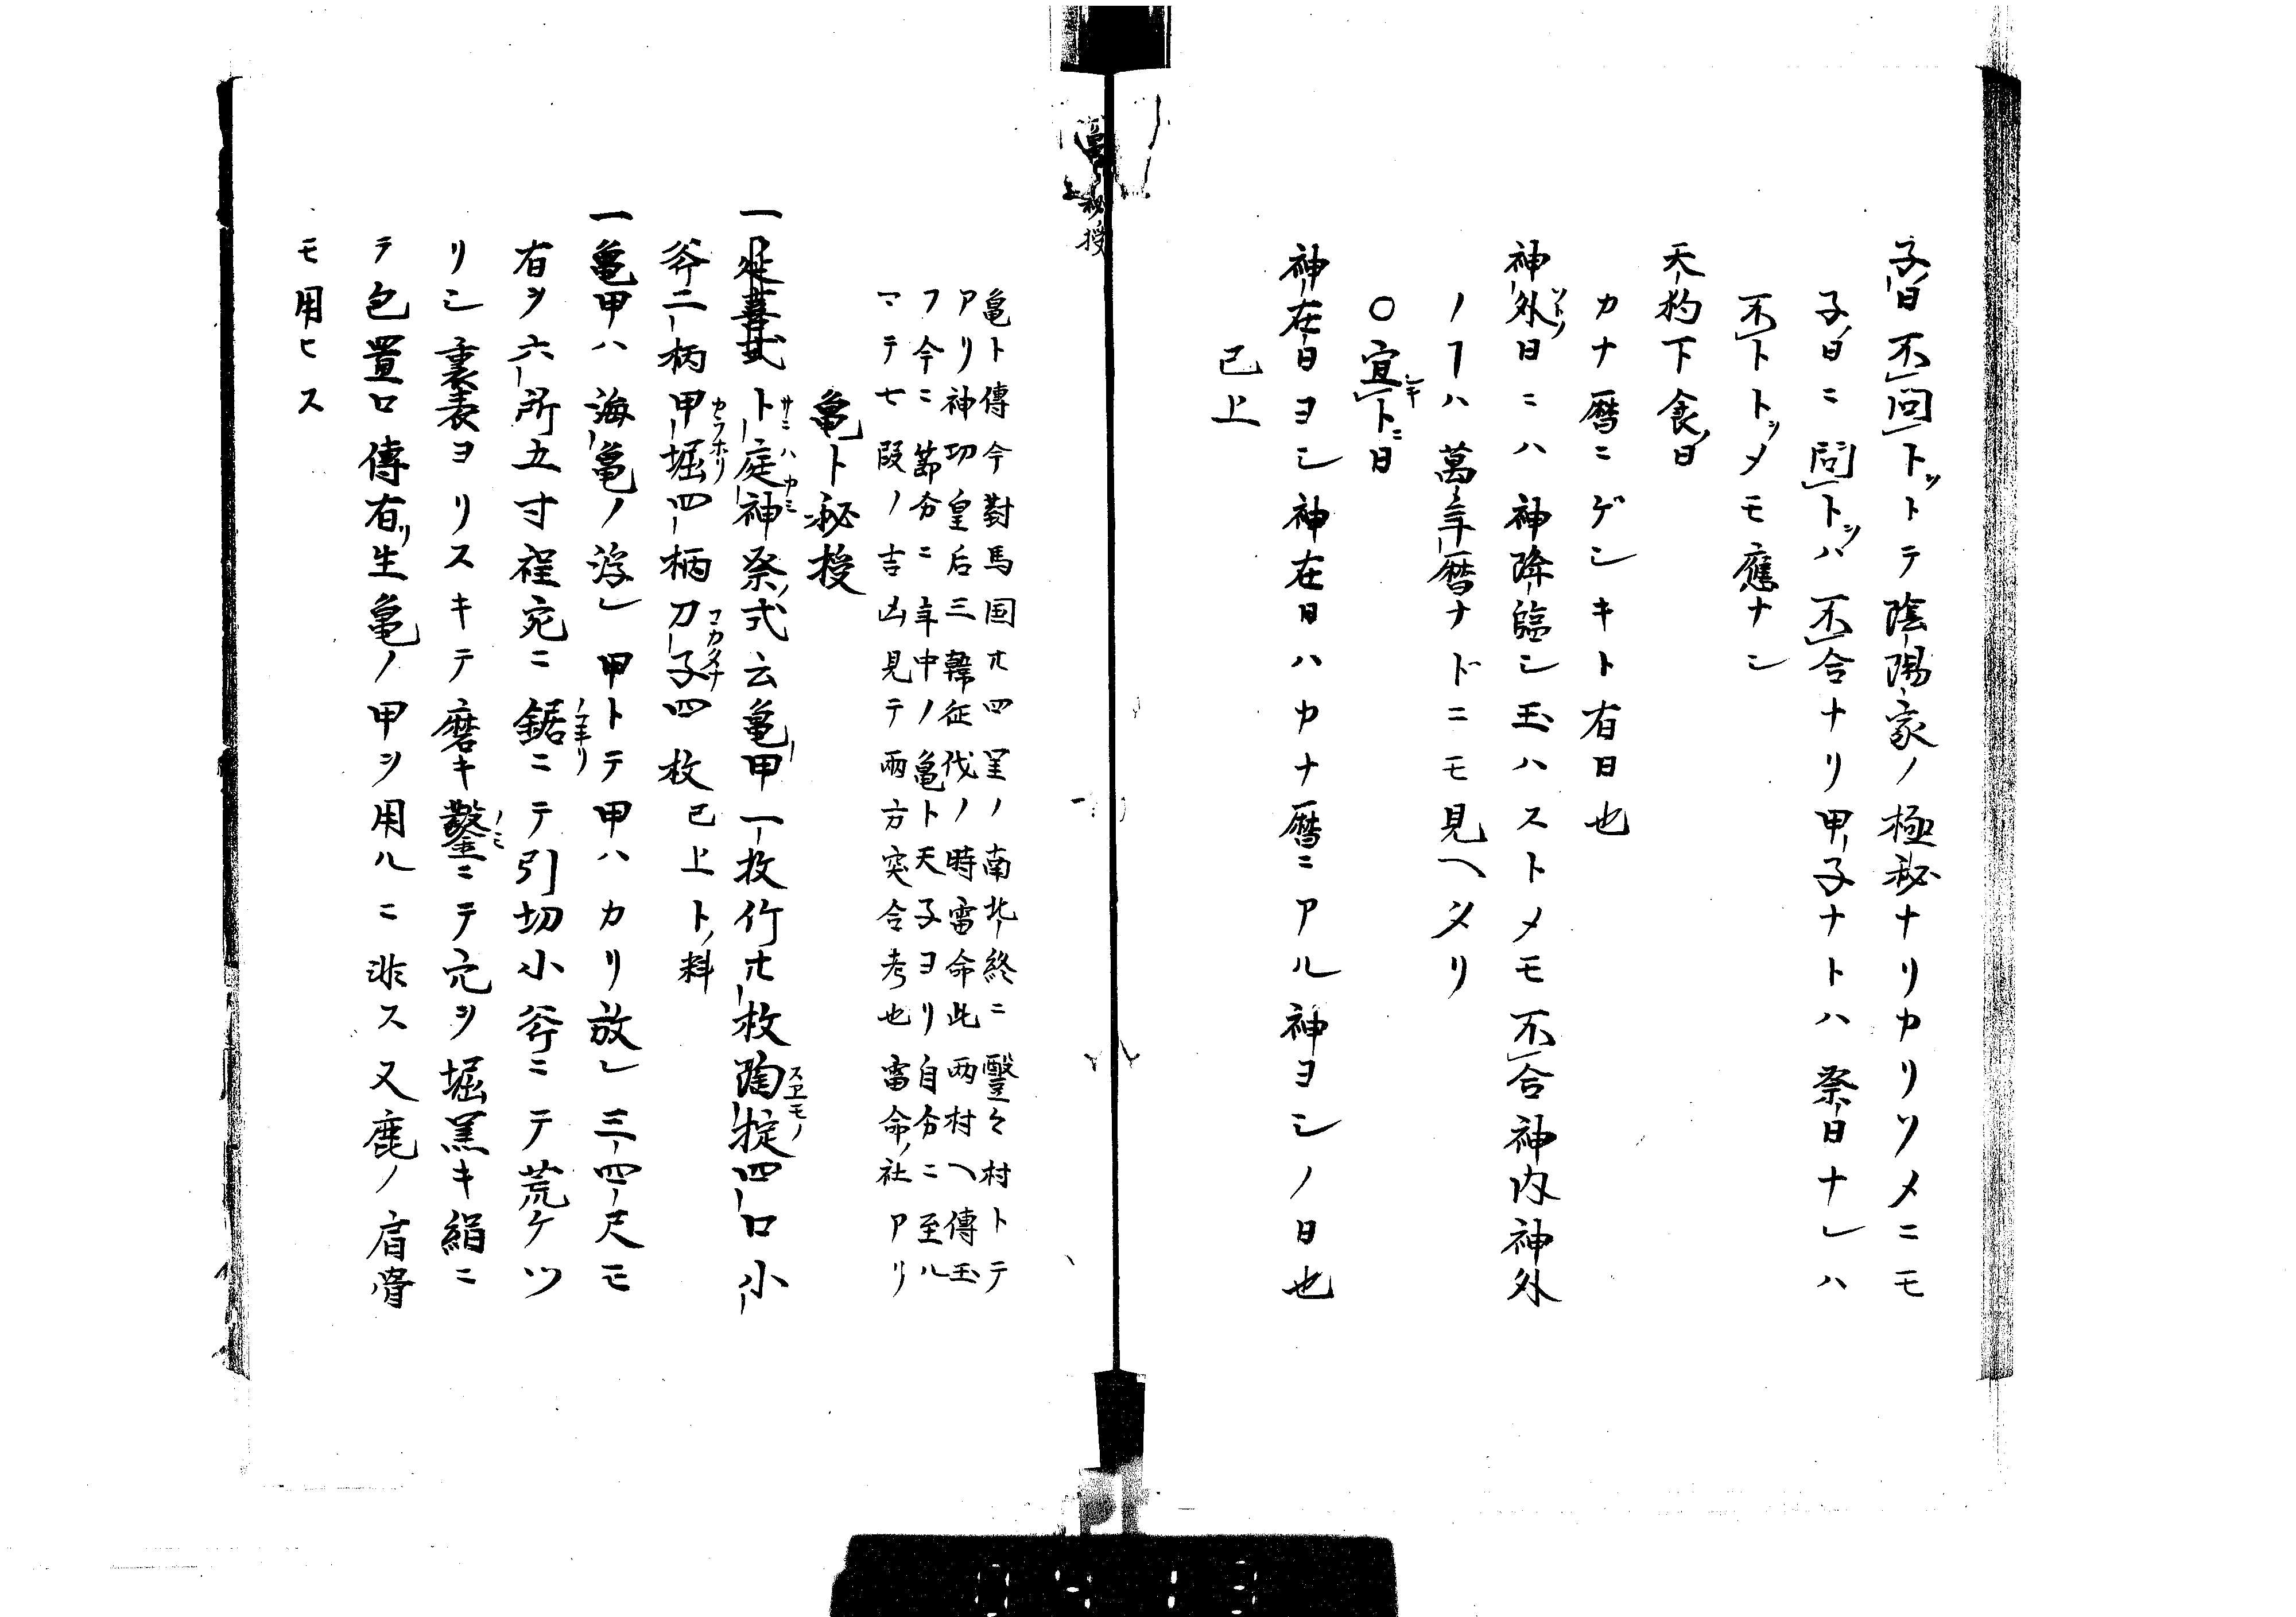 子日不問卜トテ陰陽家ノ極秘ナリカリソメニモ
子日ニ問卜ハ不合ナリ甲子ナトハ祭日ナレハ
不卜トメモ應ナシ
天杓下食日
カナ暦ニゲシキト有日也
神外日ニハ神降臨シ玉ハストメモ不合神内神外
ノヿハ萬年暦ナドニモ見ヘタリ
〇宜卜日
神在日ヨシ神在日ハカナ暦ニアル神ヨシノ日也
已上
亀卜秘授
亀卜傳今對馬国オ四里ノ南北終ニ豎々村トテ
アリ神功皇后三韓征伐ノ時雷命此両村ヘ傳玉
フ今ニ節分ニ年中ノ亀卜天子ヨリ自分ニ至ル
マテ七段ノ吉凶見テ両方突合考也雷命ノ社アリ
亀卜秘授
一延喜式卜庭神祭ノ式云亀甲一枚竹廿枚陶掟四口小
斧二柄甲堀四柄刀子四枚已上卜ノ料
一亀甲ハ海亀ノ浮レ甲トテ甲ハカリ放レ三四尺モ
有ヲ六所五寸程宛ニ鋸ニテ引切小斧ニテ荒ケツ
リシ裏表ヨリスキテ磨キ鑿ニテ穴ヲ堀黒キ絹ニ
テ包置口傳有リ生亀ノ甲ヲ用ルニ非ス又鹿ノ肩骨
モ用ヒス